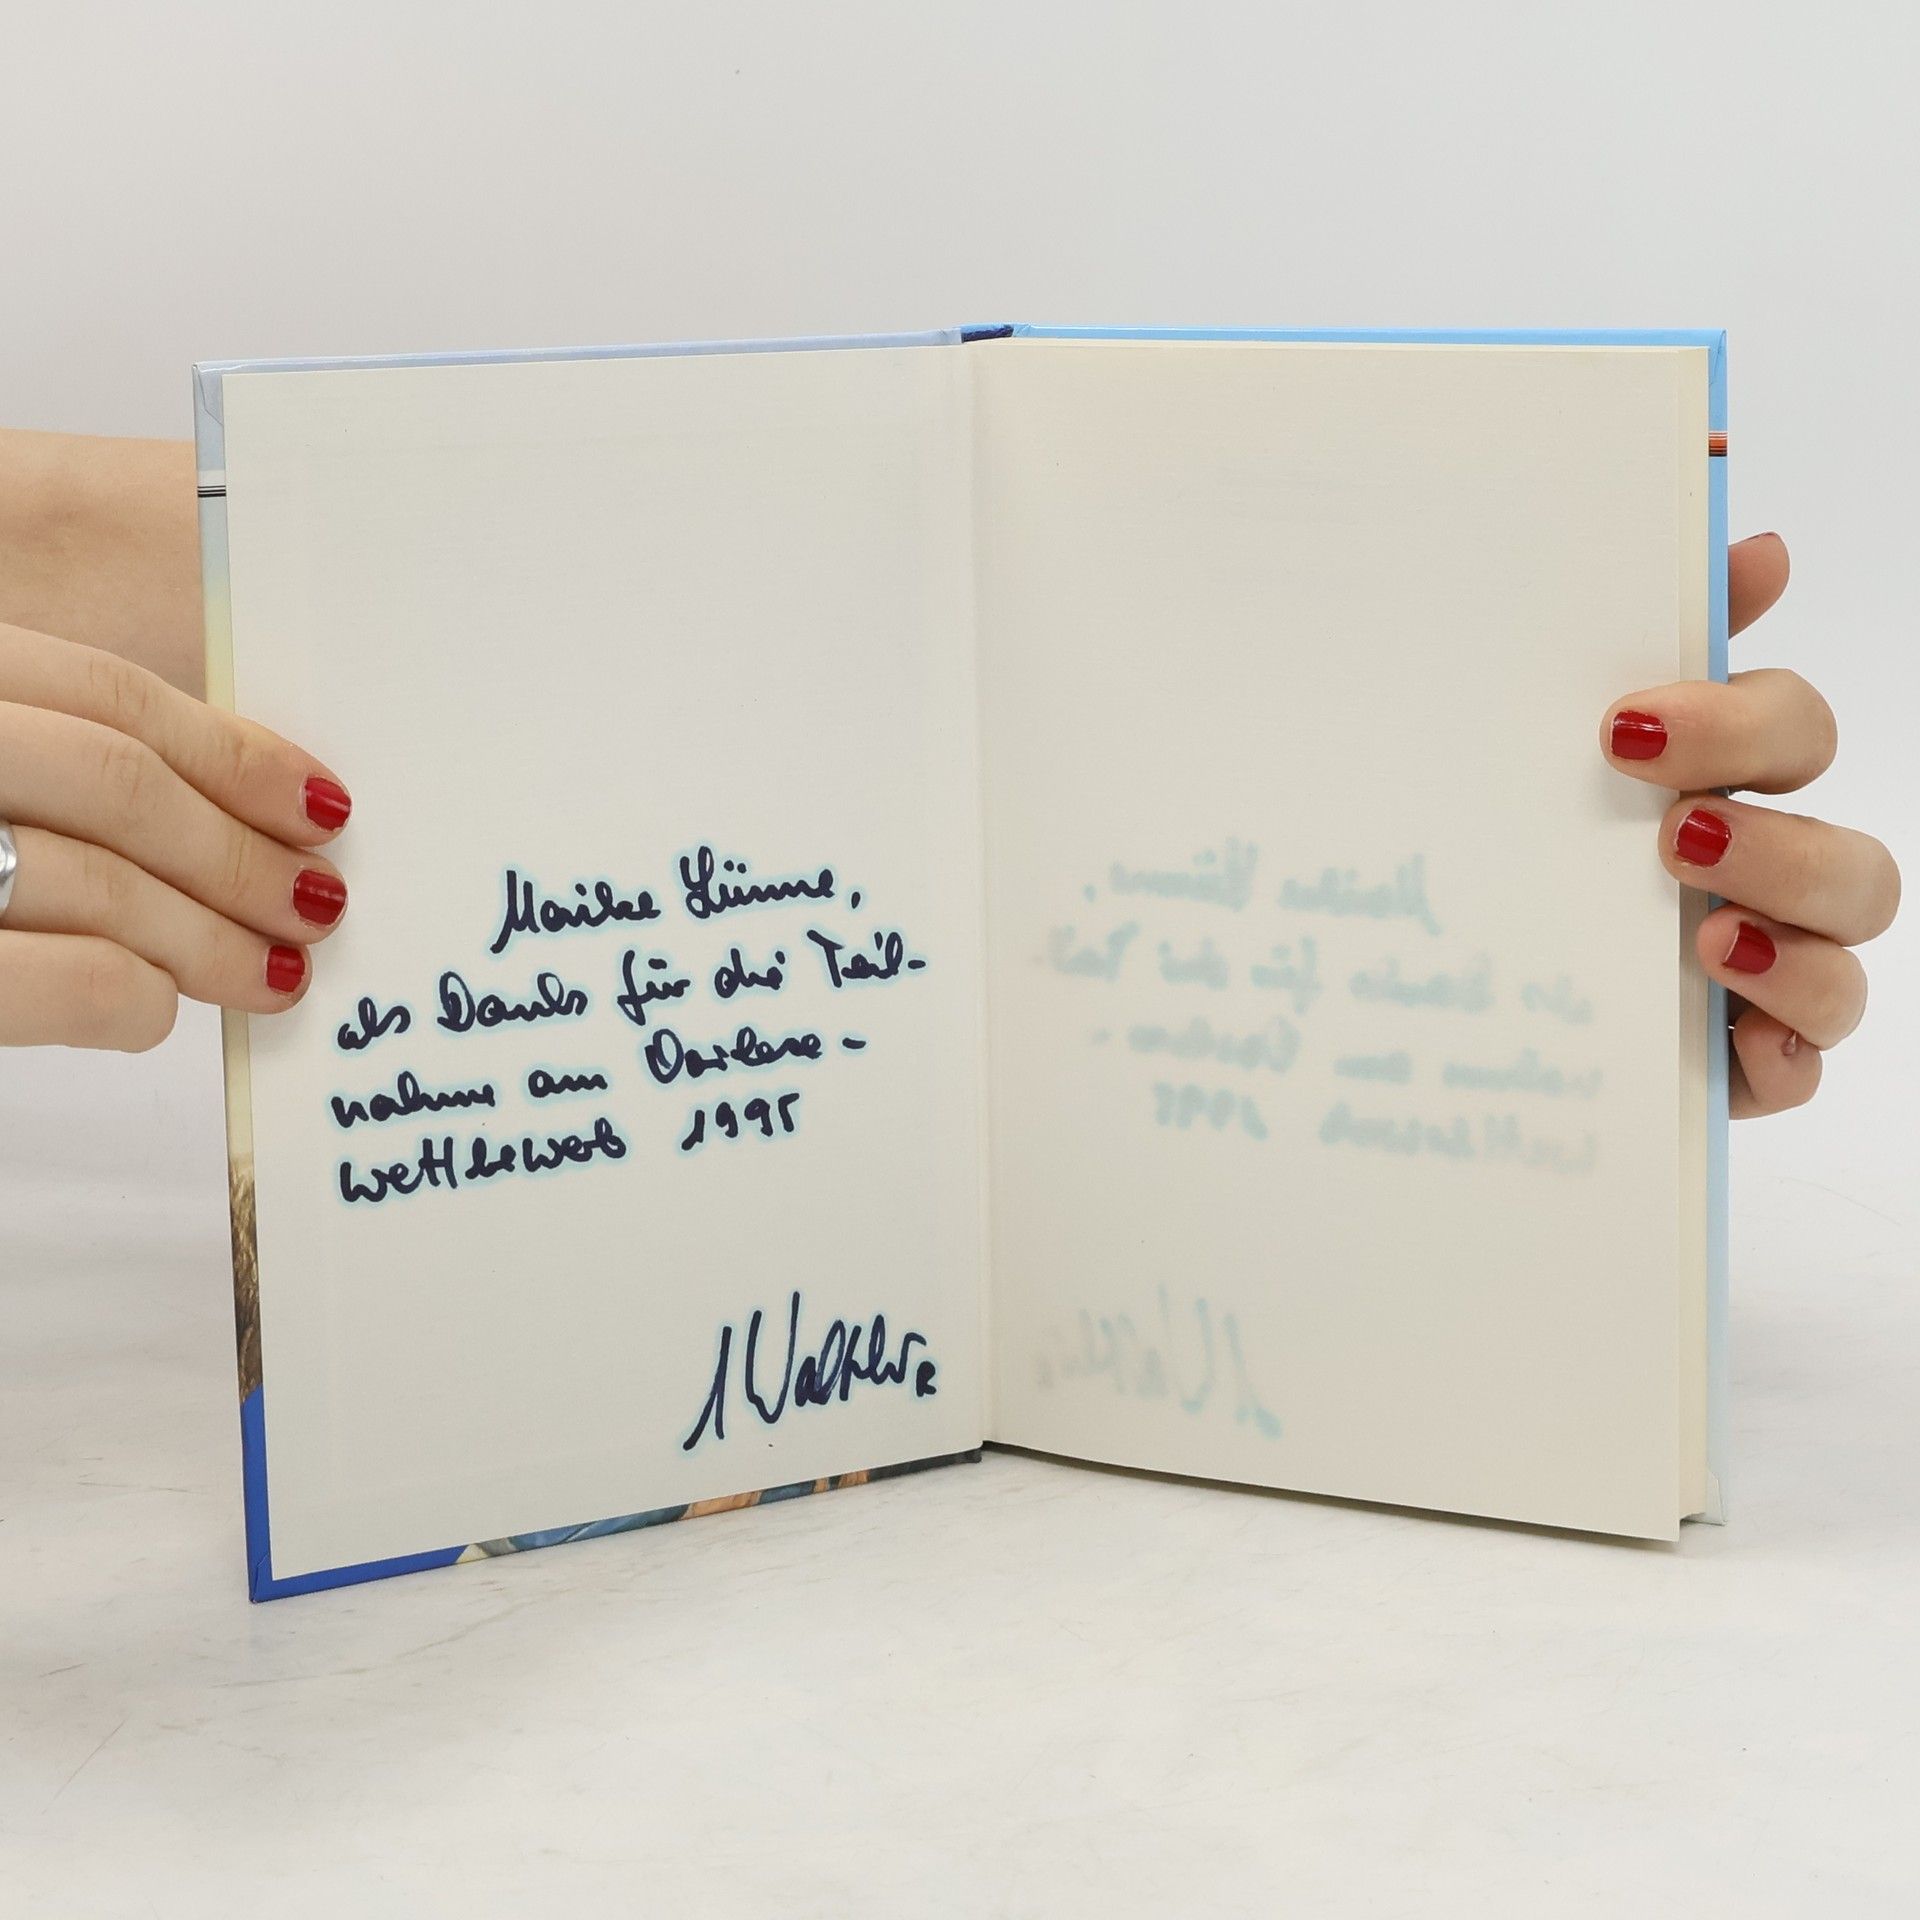 Marike Lünne,
als Dank für die Teil-
nahme am Vorlese-
wettbewerb 1995